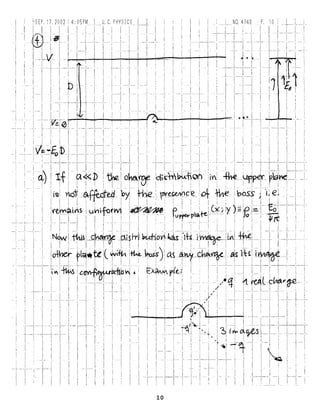 SEP. 17. 2002 4:05PM U. C. PHYSICS NO. 4740 P. 10
④
V
D
E₀
V=0
V=-E₀D
a) If a<<D the charge distribution in the upper plane
is not affected by the presence of the boss ; i.e.
remains uniform ρ upper plate (x;y) ≡ ρ₀ = E₀/4π
Now this charge distribution has its image in the
other plate (with the boss) as any charge as its image
in this configuration. Example:
q 1 real charge
q'
-q'
3 images
-q
10